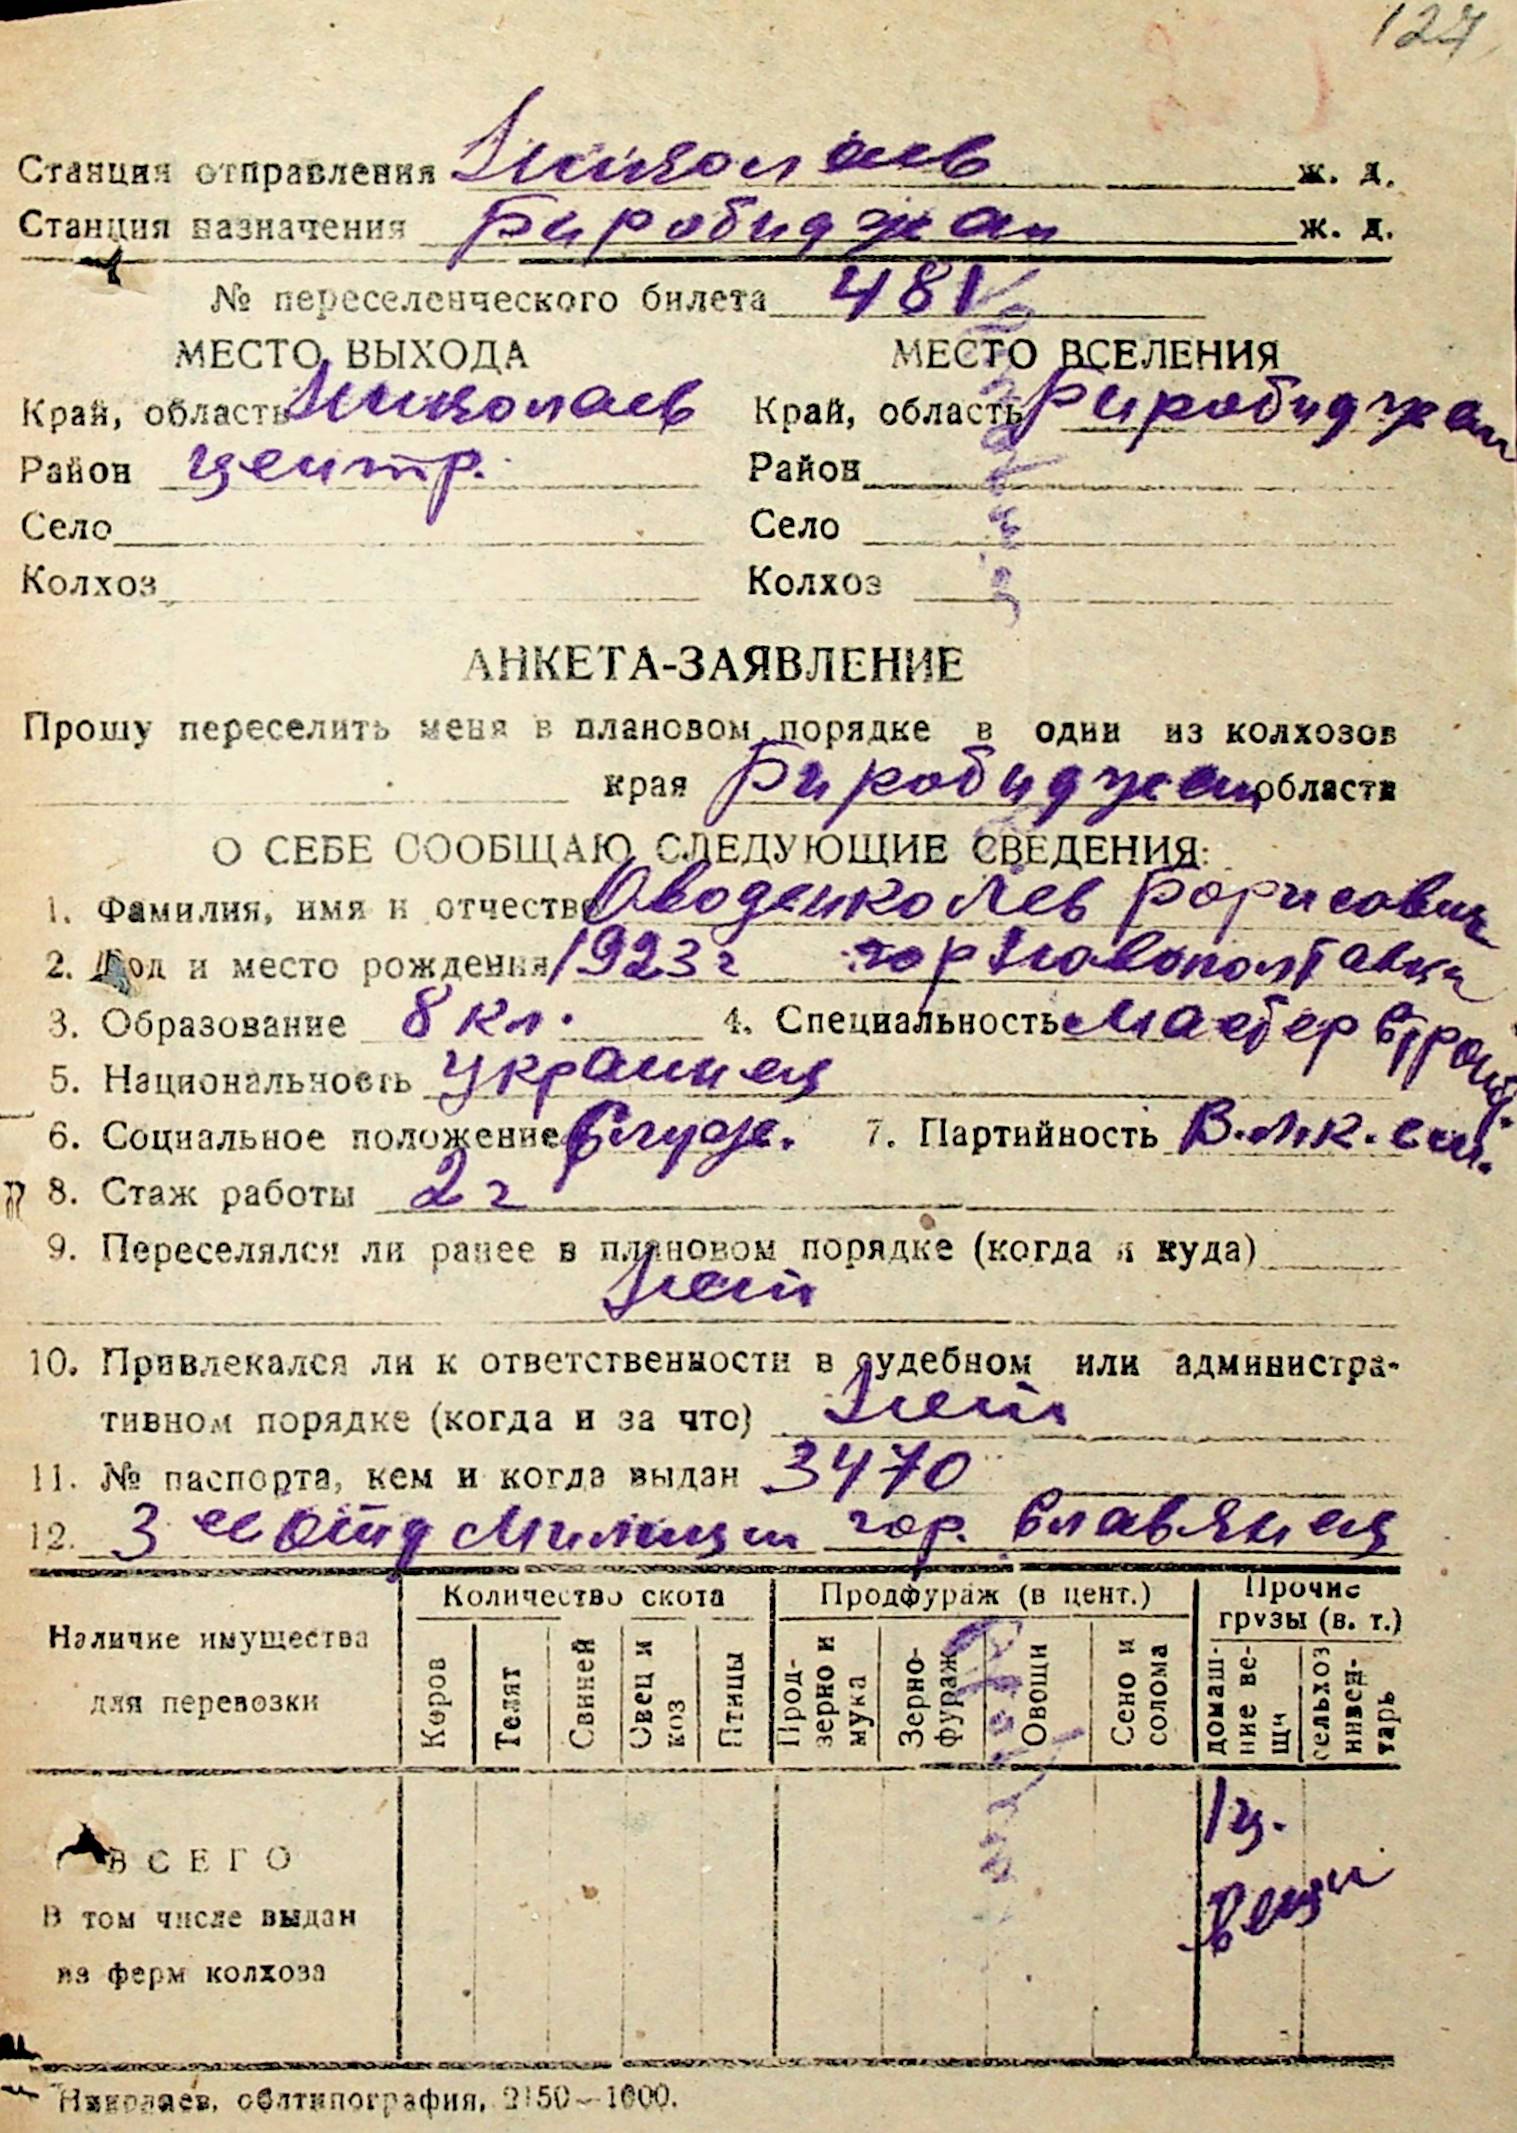 127
Станция отправления Николаев ж. д.
Станция назначения Биробиджан ж. д.
№ переселенческого билета 481
МЕСТО ВЫХОДА МЕСТО ВСЕЛЕНИЯ
Край, область Николаев Край, область Биробиджан
Район центр. Район
Село Село
Колхоз Колхоз
АНКЕТА-ЗАЯВЛЕНИЕ
Прошу переселить меня в плановом порядке в один из колхозов
края Биробиджан области
О СЕБЕ СООБЩАЮ СЛЕДУЮЩИЕ СВЕДЕНИЯ:
1. Фамилия, имя и отчество Оводенко Лев Борисович
2. Год и место рождения 1923 г гор Новополтавка
3. Образование 8 кл. 4. Специальность Мастер строит.
5. Национальность украинец
6. Социальное положение служ. 7. Партийность В.Л.К.СМ.
8. Стаж работы 2 г
9. Переселялся ли ранее в плановом порядке (когда и куда)
Нет
10. Привлекался ли к ответственности в судебном или администра-
тивном порядке (когда и за что) Нет
11. № паспорта, кем и когда выдан 3470
12. 3 Отд Милиции гор. Славянск
Количество скота Продфураж (в цент.) Прочие грузы (в. т.)
Наличие имущества для перевозки Коров Телят Свиней Овец и коз Птицы Прод-зерно и мука Зерно-фураж Овощи Сено и солома домаш-ние ве-щи сельхоз инвен-тарь
1 ц.
ВСЕГО
Вещи
В том числе выдан
из ферм колхоза
Николаев, облтипография, 2150—1000.